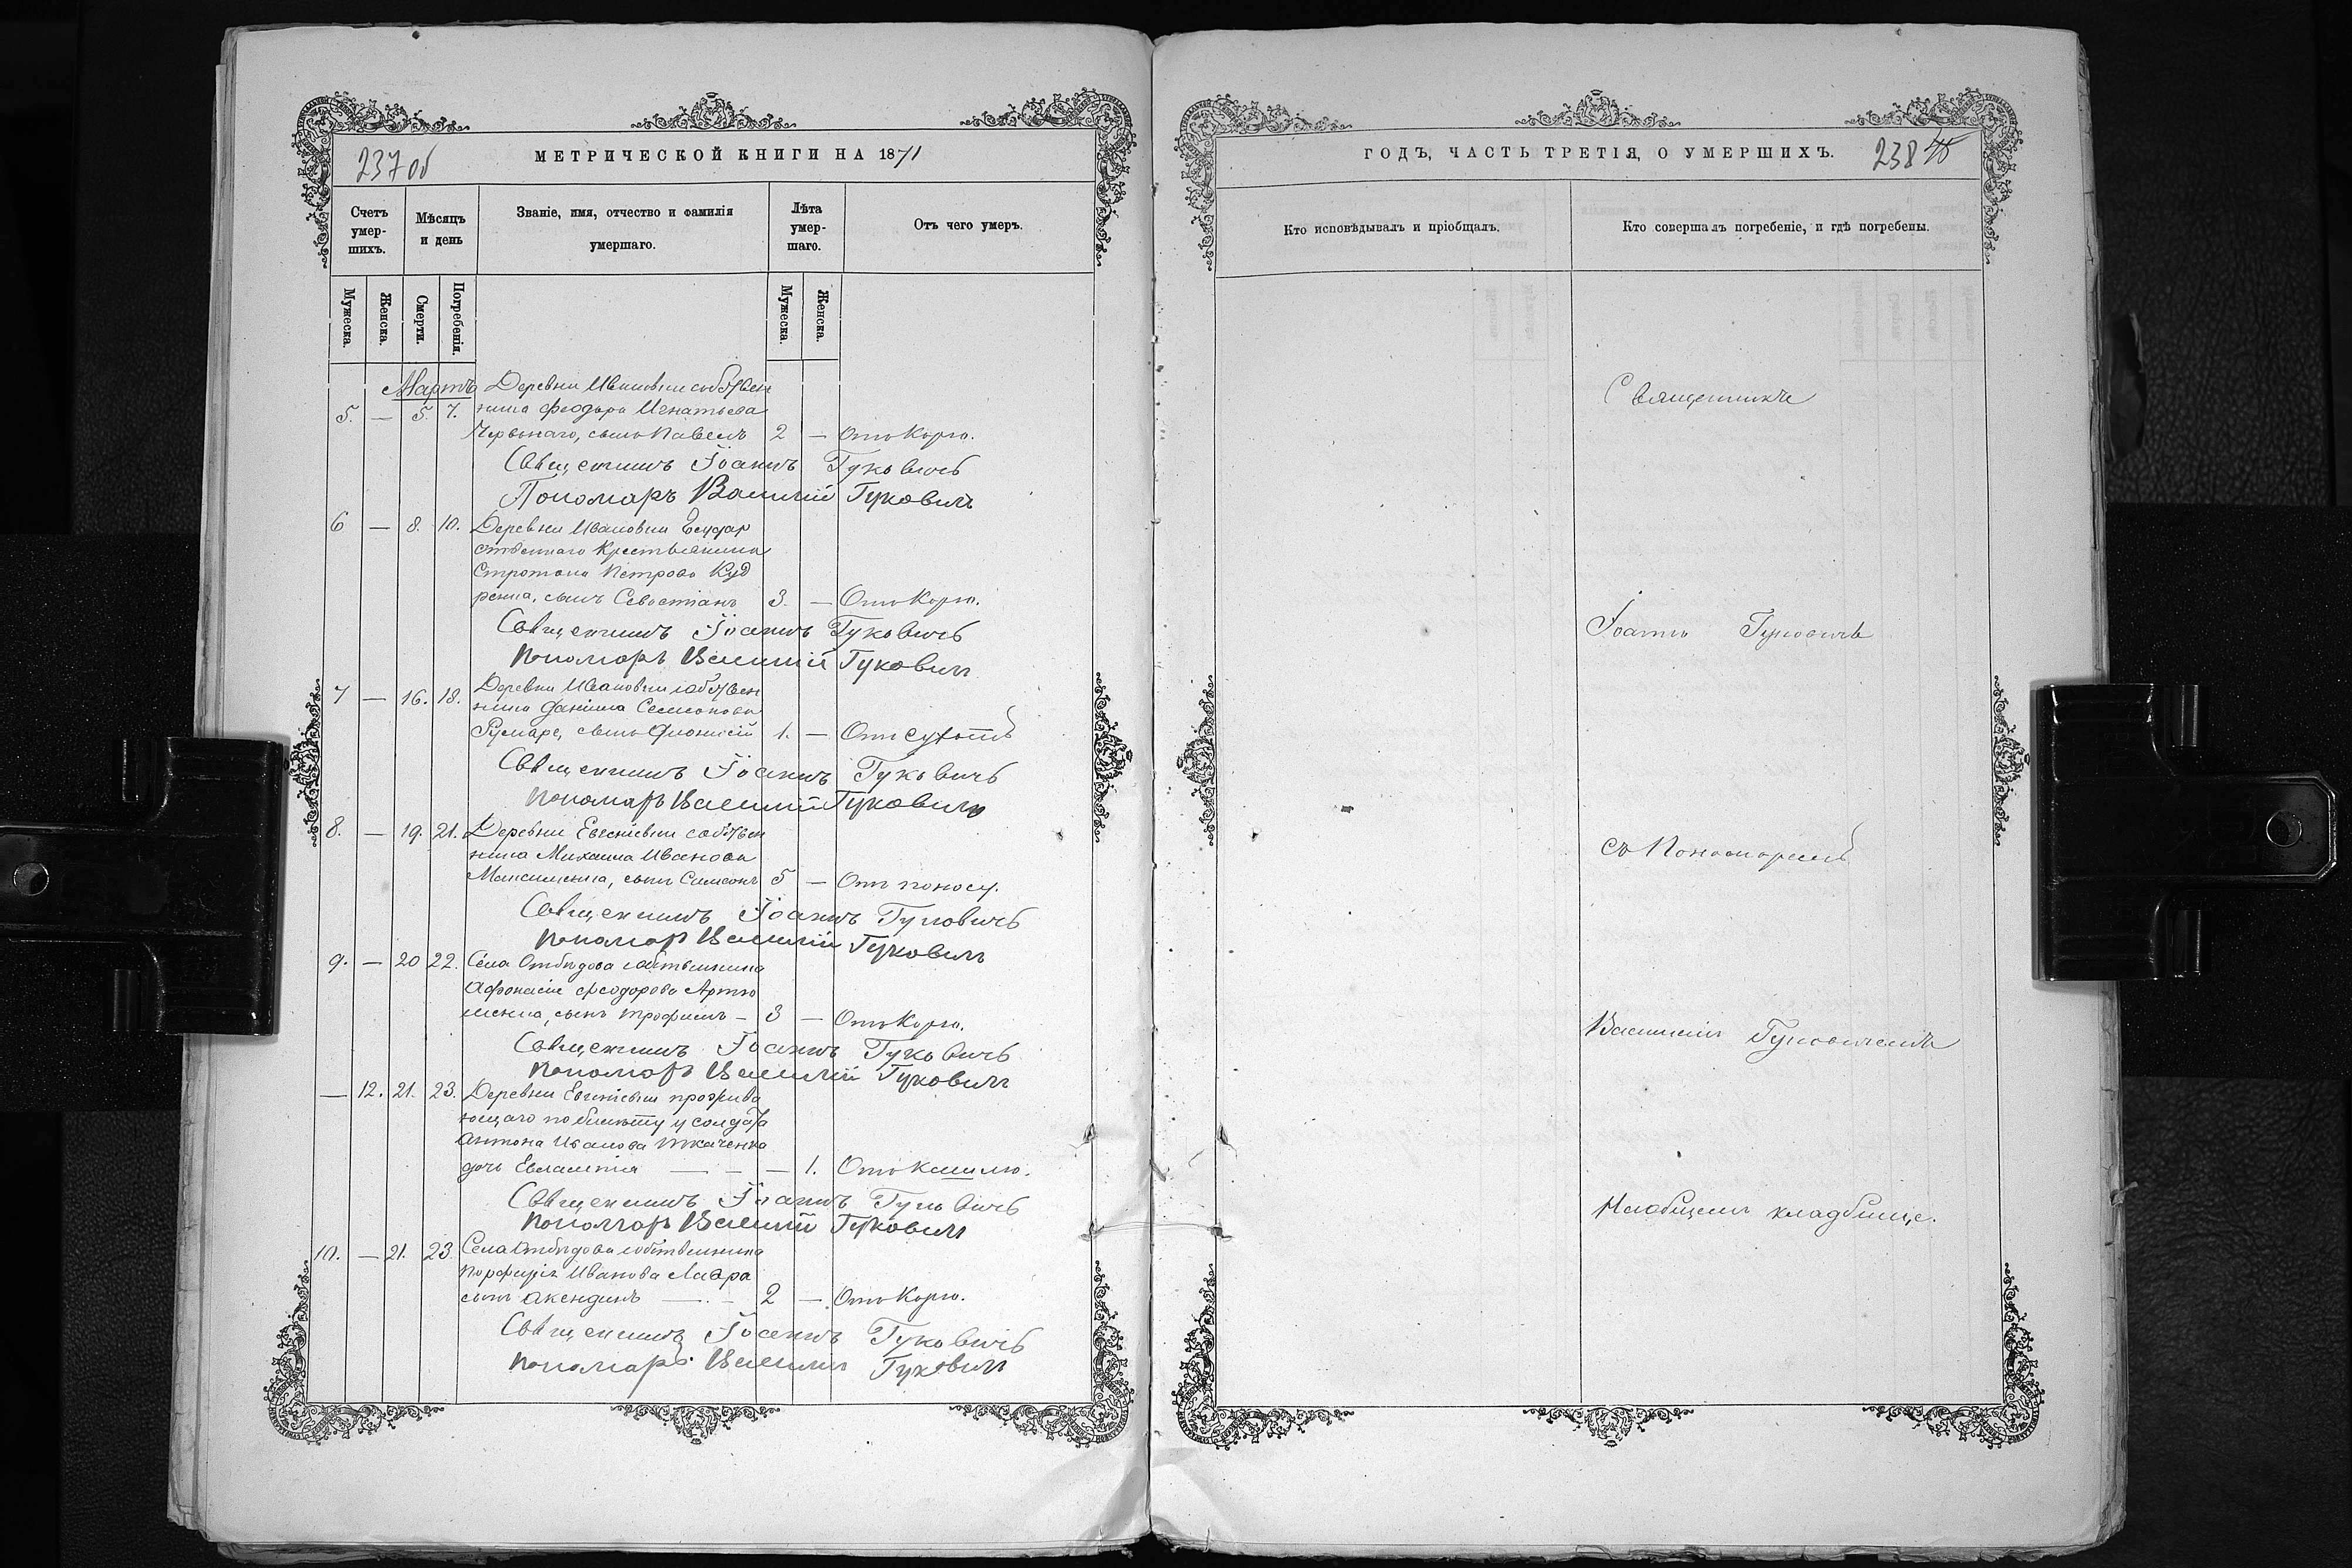 237 об
МЕТРИЧЕСКОЙ КНИГИ НА 1871
Счетъ умер-шихъ.
Мѣсяцъ и день
Званіе, имя, отчество и фамилія умершаго.
Лѣта умер-шаго.
Отъ чего умеръ.
Мужеска.
Женска.
Смерти.
Погребенія.
Мужеска.
Женска.
Мартъ
Деревни Ивановки
5. — 5. 7. Феодора Игнатьева
сынъ Павелъ 2 — Отъ Корю.
Священникъ Іоаннъ Гуковичъ
Пономарь Василій Гуковичъ
6 — 8. 10. Деревни Ивановки Государ
ственнаго Крестьянина
Стратона Петрова Куд
ренка, сынъ Севастіанъ 3. — Отъ Корю.
Священникъ Іоаннъ Гуковичъ
Пономарь Василій Гуковичъ
7 — 16. 18. Деревни Ивановки
Даніила Семионова
сынъ Діонисій 1. — Отъ сухотъ
Священникъ Іоаннъ Гуковичъ
Пономарь Василій Гуковичъ
8. — 19. 21. Деревни
Михаила Иванова
Максименка, сынъ Симеонъ 5 — Отъ поносу.
Священникъ Іоаннъ Гуковичъ
Пономар Василій Гуковичъ
9. — 20 22. Села
Афонасія Феодорова Артю
шенка, сынъ Трофимъ — 3 — Отъ Корю.
Священникъ Іоаннъ Гуковичъ
Пономарь Василій Гуковичъ
— 12. 21. 23. Деревни прожива
ющаго по билету у солдата
Антона Иванова Ткаченка
дочь Евлампія — — — 1. Отъ Кашлю.
Священникъ Іоаннъ Гуковичъ
Пономарь Василій Гуковичъ
10. — 21. 23. Села собственника
Порфирія Иванова Лавра
сынъ Акендинъ — — 2 — Отъ Корю.
Священникъ Іоаннъ Гуковичъ
Пономарь Василій Гуковичъ
ГОДЪ, ЧАСТЬ ТРЕТІЯ, О УМЕРШИХЪ.
238
Кто исповѣдывалъ и пріобщалъ.
Кто совершалъ погребеніе, и гдѣ погребены.
Священникъ
Іоаннъ Гуковичъ
съ Пономаремъ
Василіемъ Гуковичемъ
На общемъ кладбище.